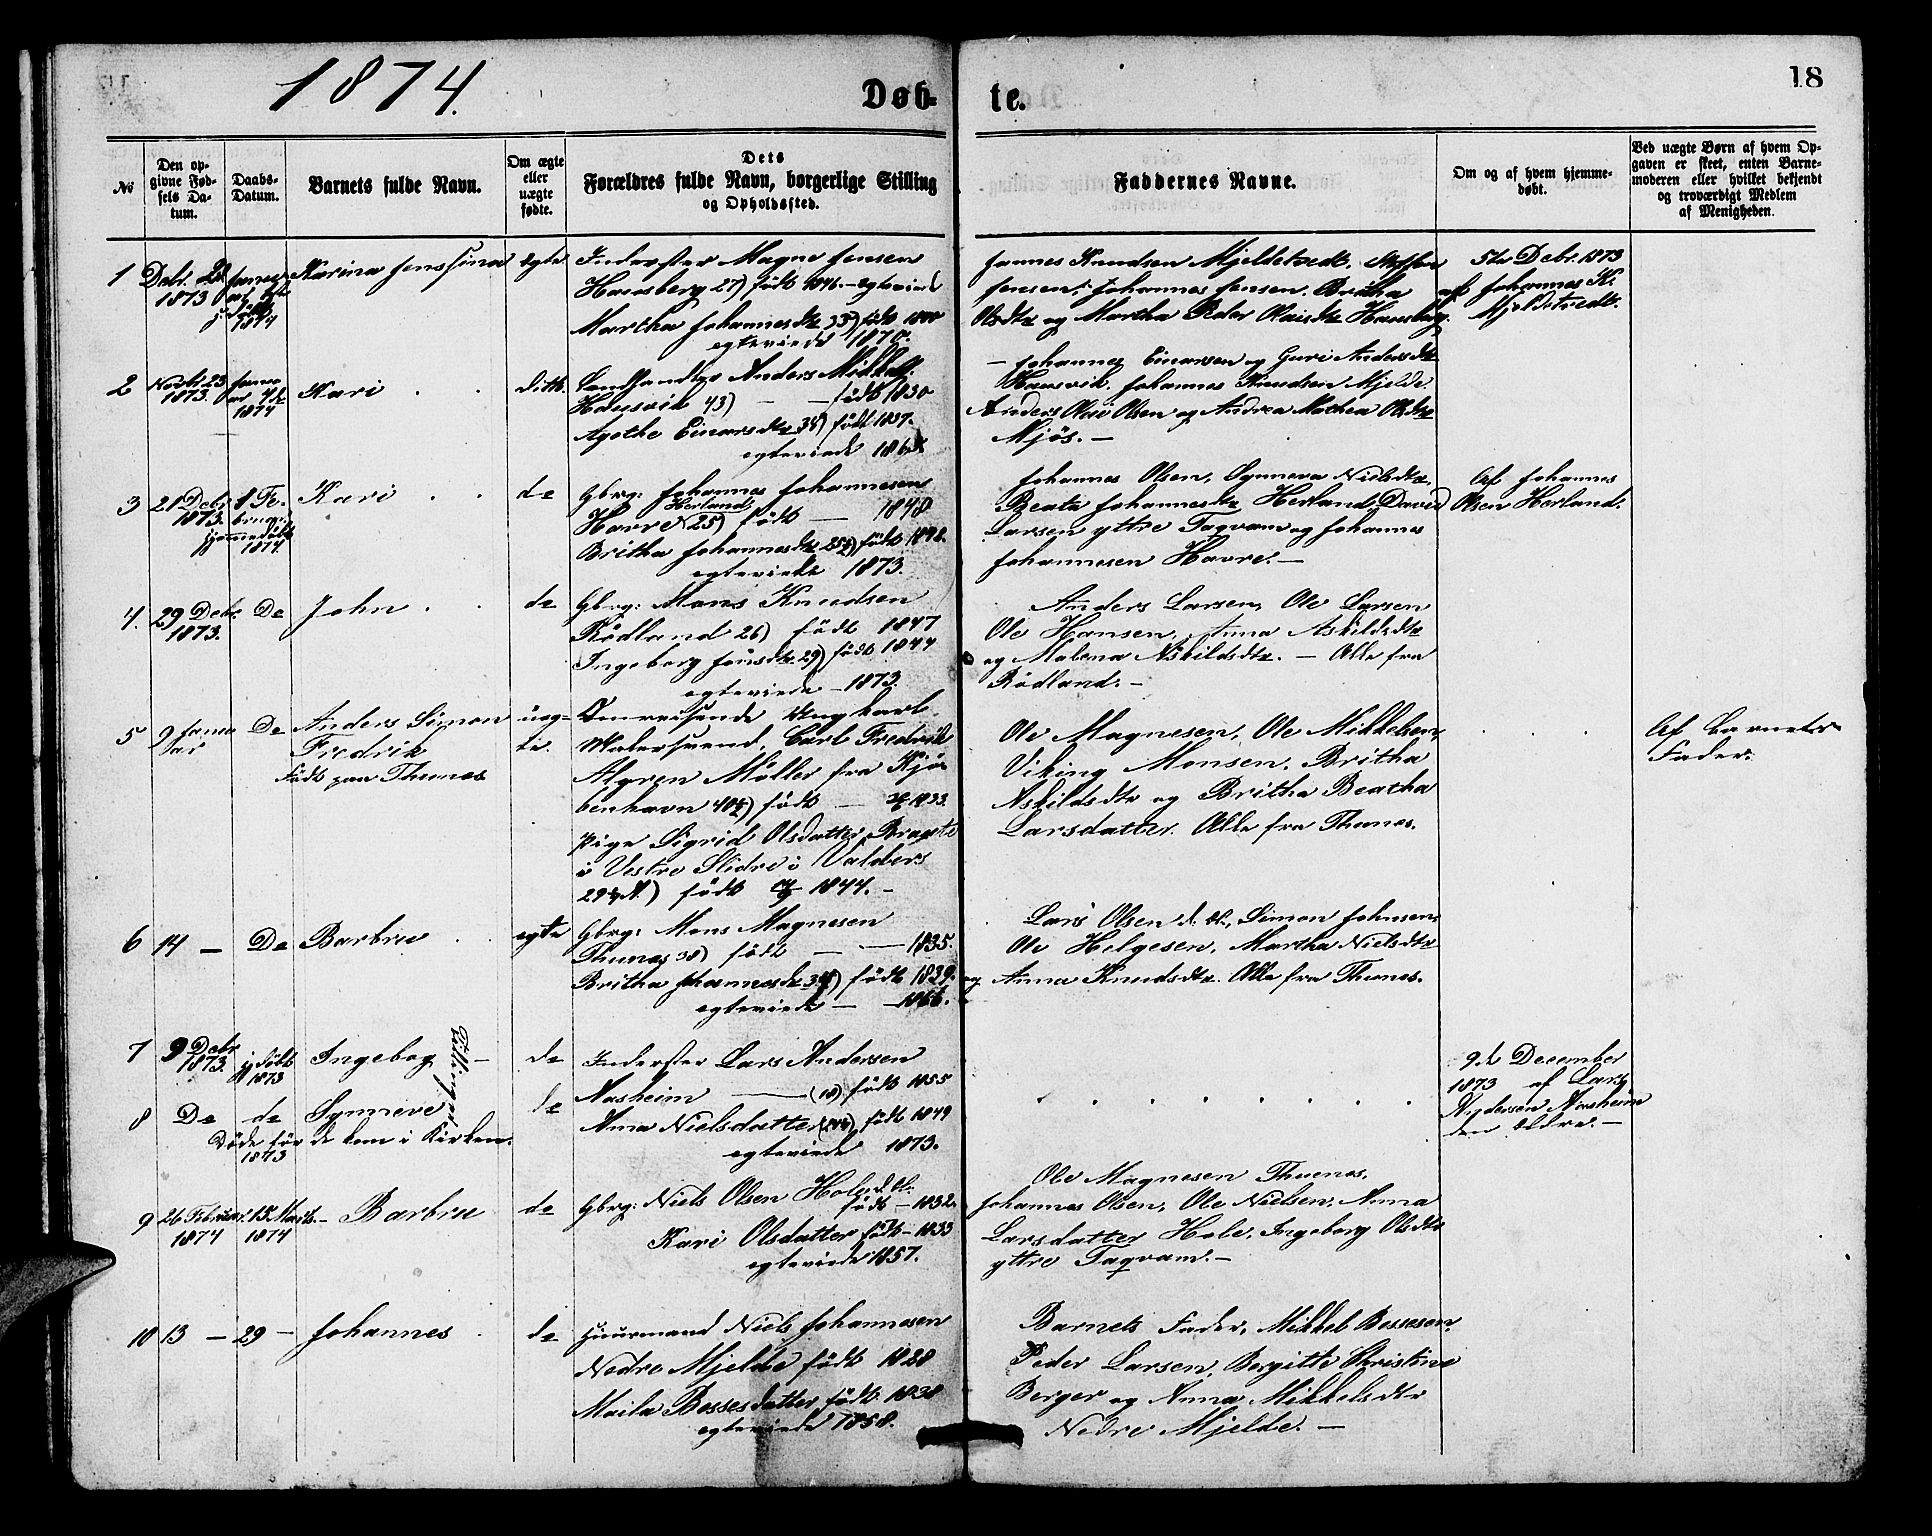 1874.
Døb-
te.
18
No
Den op-
givne Fød-
sels Da-
tum.
Daabs-
Datum.
Barnets fulde Navn.
Om ægte
eller
uægte
fødte.
Dets
Forældres fulde Navn, borgerlige Stilling
og Opholdssted.
Faddernes Navne.
Om og af hvem hjemme-
døbt.
Ved uægte Børn af hvem Op-
gaven er skeet, enten Barne-
moderen eller hvilket bekjendt
og troværdigt Medlem
af Menigheden.
1
Debr.
1873
1874
Karina Jenssina
egte
Inderster Magne Jensen
Hausberg 27) født 1846 - egteviede
Martha Johannesdtr 33) født
egteviede 1870.
Johannes Knudsen Mjeldetvedt, Steffen
Jensen, Johannes Jensen, Britha
Olsdtr og Martha Peder Olaisdtr Hausberg.
5te Debr. 1873
af Johannes K.
Mjeldetvedt.
2
Novbr 23
1873.
1874
Kari
ditto
Anders Mikkels.
Hausvik 43) - født 1830
Agethe Einarsdtr 38) født 1837.
egteviede
- Johannes Einarsen og Guri Andersdtr
Hausvik, Johannes Knudsen Mjelde
Anders Olai Olsen og Andrea Mathea Olsdtr
Mjøs. -
3
21 Debr
1873.
1 Fe-
bruar
hjemmedøbt
1874.
Kari
do
Gbrg: Johannes Johannesen
Herland
Havre 25) født - 1848
Britha Johannesdtr 25½) født 1848.
egteviede 1873.
Johannes Olsen, Synneva Nielsdtr
Beata Johannesdtr Herland, David
Larsen yttre Taqvam og Johannes
Johannesen Havre. -
Af Johannes
Olsen Herland.
4.
29 Debr.
1873.
Do
John
do
Gbrg: Mons Knudsen
Rödland 26) født 1847
Ingeborg Jonsdtr 29) født 1844
egteviede - 1873.
Anders Larsen, Ole Larsen
Ole Hansen, Anna Askildsdtr
og Malena Askildsdtr. - Alle fra
Rödland. -
5
9 Janu-
ar
Do
Anders Simon
Fredrik
Født paa Thunes
uæg-
te.
Omreisende Ungkarl
Malersvend, Carl Fredrik
Algren Møller fra Kjø-
benhavn 40½) født - 1833.
Pige Sigrid Olsdatter
i Vestre Slidre i Valders
født 1844. -
Ole Magnesen, Ole Mikkelsen,
Viking Monsen, Britha
Askildsdtr og Britha Beatha
Larsdatter. Alle fra Thunes.
Af Barnets
Fader.
6
14 -
Do
Barbru
egte
Gbrg: Mons Magnesen
Thunes 38) født - 1835.
Britha Johannesdtr 34) født 1839.
egteviede - 1866.
Lars Olsen d. æl., Simon Johnsen,
Ole Helgesen, Martha Nielsdtr
og Anna Knudsdtr. Alle fra Thunes.
7
9 Debr
1873.
hjdøbt
1873
Ingebog -
Tvillinger
do
Inderster Lars Andersen
Aasheim - (18) født 1855
Anna Nielsdatter født 1849
egteviede 1873.
9de December
1873 af Lars
Andersen Aasheim
den Ældre. -
8
Do
do
Synneve
do
Døde før de kom i Kirken.
1873
9
26 Februar
1874
15 Marts.
1874
- Barbru
do
Gbrg: Niels Olsen Hole d. æl.
født - 1832.
Kari Olsdatter født - 1833
egteviede 1857.
Ole Magnesen Thunes,
Johannes Olsen, Ole Nielsen, Anna
Larsdatter Hole, Ingeborg Olsdtr
yttre Taqvam. -
10
13 -
29 -
Johannes
do
Huusmand Niels Johannesen
Nedre Mjelde født 1828
Maila Bessesdatter født 1838
egteviede 1858.
Barnets Fader, Mikkel Bessesen,
Peder Larsen, Bergitte Christine
Berger og Anna Mikkelsdtr
Nedre Mjelde. -